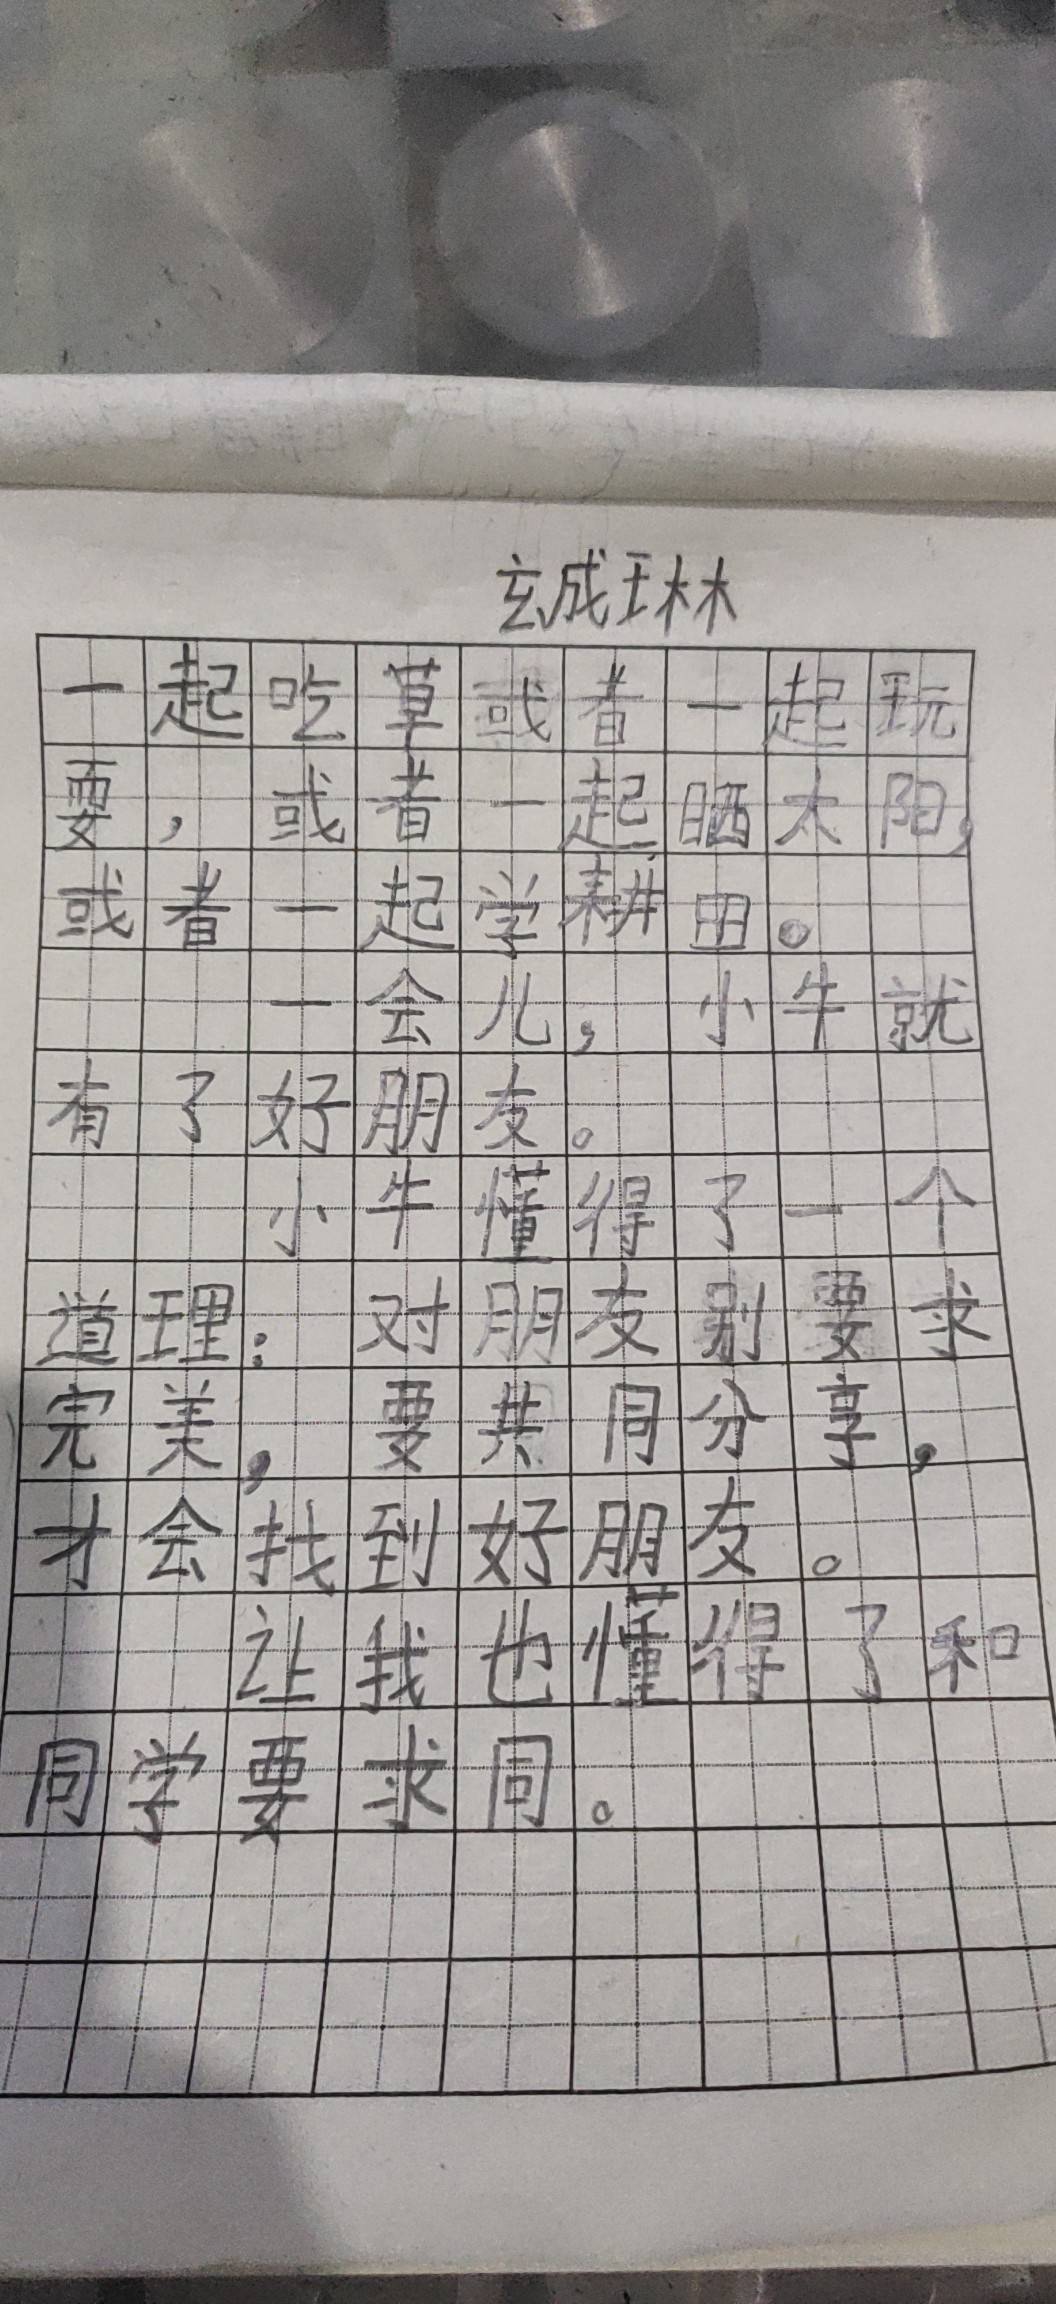 玄成琳
一起吃草或者一起玩
耍，或者一起晒太阳，
或者一起学耕田。
一会儿，小牛就
有了好朋友。
小牛懂得了一个
道理：对朋友别要求
完美，要共同分享，
才会找到好朋友。
让我也懂得了和
同学要求同。